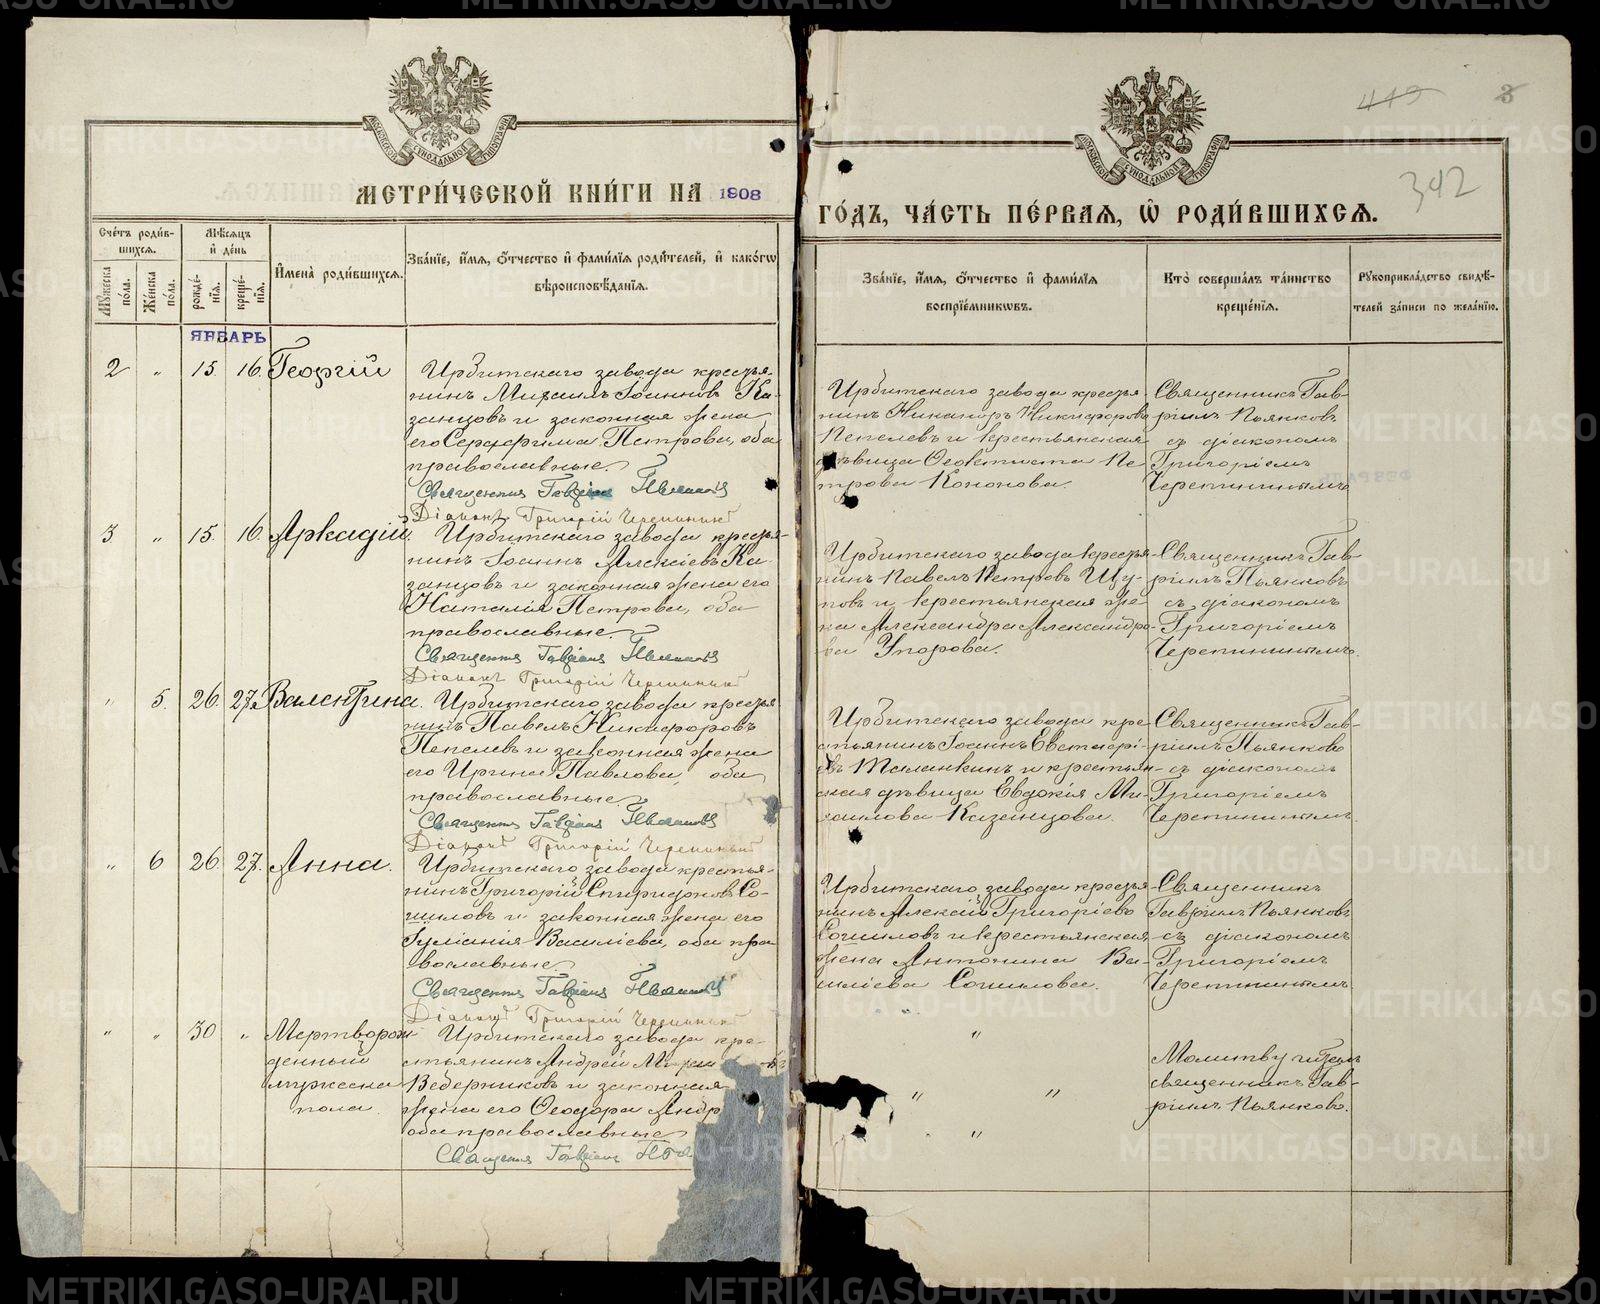 МЕТРИ́ЧЕСКОЙ КНИ́ГИ НА 1908
ГО́ДЪ, ЧА́СТЬ ПЕ́РВАЯ, Ѿ РОДИ́ВШИХСЯ.
342
Сче́тъ роди́в-
шихся.
Мѣ́сяцъ
и҆ де́нь
Му́жеска по́ла.
Же́нска по́ла.
рожде́-
нія.
креще́-
нія.
И҆мена̀ роди́вшихся.
Зва́нїе, и҆́мя, ѻ҆́тчество и҆ фами́лїя роди́телей, и҆ како́гѡ
вѣроисповѣ́данїя.
Зва́нїе, и҆́мя, ѻ҆́тчество и҆ фами́лїя
воспрїе́мникѡвъ.
Кто̀ соверша́лъ та́инство
креще́нїя.
Рукоприкла́дство свидѣ́-
телей за́писи по жела́нїю.
ЯНВАРЬ
2 " 15 16 Георгій
Ирбитскаго завода крестья-
нинъ Михаилъ Іоанновъ Ка-
занцовъ и законная жена
его Серафима Петрова, оба
православные.
Священникъ Гавріилъ Пьянковъ
Діаконъ Григорій Черепининъ
Ирбитскаго завода крестья
нинъ Никаноръ Никифоровъ
Пепелевъ и крестьянская
дѣвица Ѳеоктиста Пе
трова Кононова.
Священникъ Гав-
ріилъ Пьянковъ
съ діакономъ
Григоріемъ
Черепининымъ
3 " 15 16 Аркадій.
Ирбитскаго завода крестья-
нинъ Іоаннъ Алексіевъ Ка
занцовъ и законная жена его
Наталія Петрова, оба
православные.
Священникъ Гавріилъ Пьянковъ
Діаконъ Григорій Черепининъ
Ирбитскаго завода крестья
нинъ Павелъ Петровъ Щу-
повъ и крестьянская же
на Александра Александро-
ва Упорова.
Священникъ Гав
ріилъ Пьянковъ
съ діакономъ
Григоріемъ
Черепининымъ.
" 5. 26. 27. Валентина.
Ирбитскаго завода крестья
нинъ Павелъ Никифоровъ
Пепелевъ и законная жена
его Ирина Павлова, оба
православные.
Священникъ Гавріилъ Пьянковъ
Діаконъ Григорій Черепининъ
Ирбитскаго завода кре
стьянинъ Іоаннъ
Таланкинъ и крестьян-
ская дѣвица Евдокія Ми-
хаилова Казанцова.
Священникъ Гав-
ріилъ Пьянковъ
съ діакономъ
Григоріемъ
Черепининымъ
" 6 26. 27. Анна.
Ирбитскаго завода крестья-
нинъ Григорій Спиридоновъ Со-
шиловъ и законная жена его
Іуліанія Василіева, оба пра
вославные.
Священникъ Гавріилъ Пьянковъ
Діаконъ Григорій Черепининъ
Ирбитскаго завода крестья
нинъ Алексій Григоріевъ
Сошиловъ и крестьянская
жена Антонина Ва-
силіева Сошилова.
Священникъ
Гавріилъ Пьянковъ
съ діакономъ
Григоріемъ
Черепининымъ
" " 30 " Мертворож
денный
мужеска
пола.
Ирбитскаго завода кре-
стьянинъ Андрей
Ведерниковъ и законная
жена его Ѳеодора Андр
оба православные
Священникъ Гавріилъ
Молитву читалъ
священникъ Гав-
ріилъ Пьянковъ.
METRIKI.GASO-URAL.RU